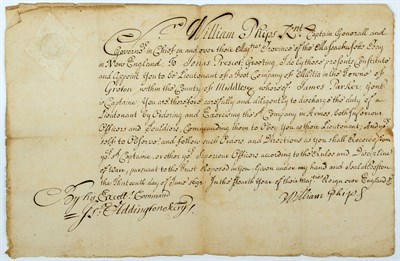 William Phips Knt. Captain Generall and
Governor in Chief in and over their Majties Province of the Massachusets Bay
in New England. To Jonas Prescot Greeting. I do by these presents Constitute
and Appoint You to be Lieutenant of a Foot Company of Militia in the Towne of
Groton within the County of Middlesex whereof James Parker, Gent
is Captaine. You are therefore carefully and diligently to discharge the duty of a
Lieutenant by Ordering and Exercising the sd Company in Armes, both Inferiour
Officers and Souldiers, Commanding them to Obey You as their Lieutenant, And yor
selfe to Observe and follow such Orders, and Directions as you shall Receive from
yor sd Captaine, or other yor Superiour Officers according to the Rules and Discipline
of Warr, pursuant to the Trust Reposed in you. Given under my hand and Seal at Boston
the day of June 1692. In the Fourth Year of their Majties Reign over England &c
William Phips
By his Excell. Command
Addington Secry